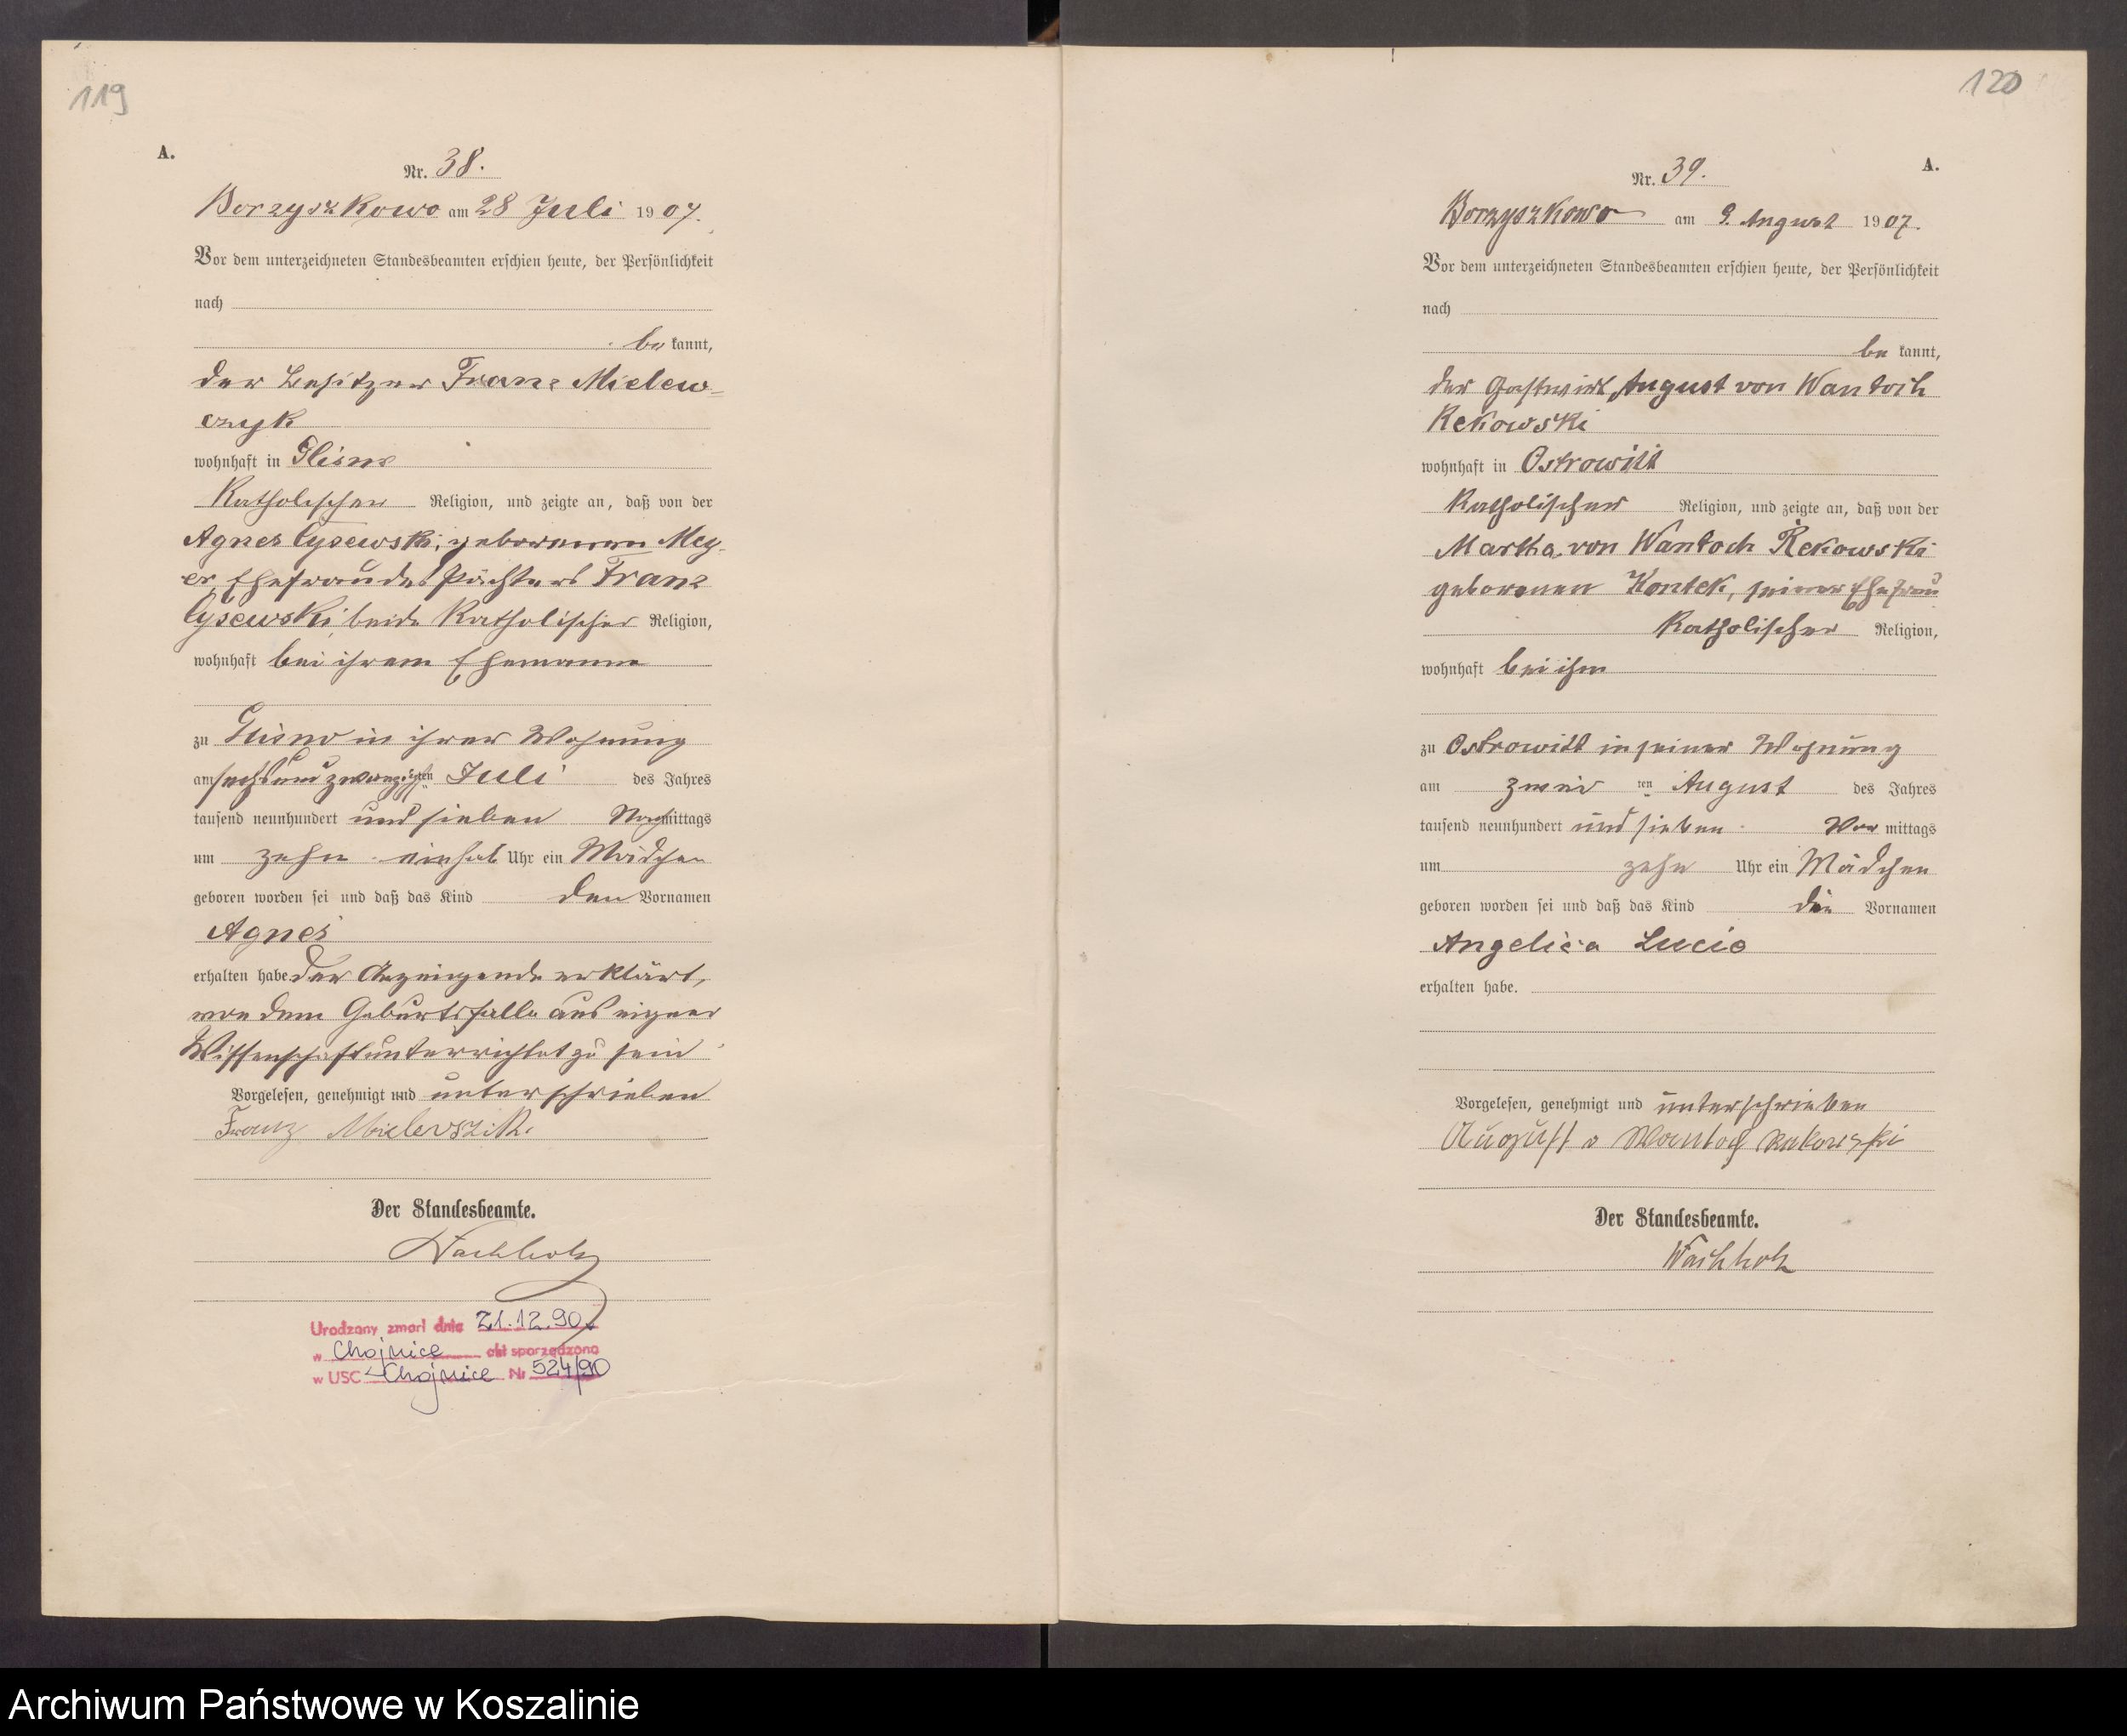 119
A.
Nr. 38.
Borzyszkowo am 28 Juli 1907.
Vor dem unterzeichneten Standesbeamten erschien heute, der Persönlichkeit
nach
be kannt,
der Besitzer Franz Mielew-
czyk
wohnhaft in Glisno
Katholischer Religion, und zeigte an, daß von der
Agnes Cysewski, geborenen Mey-
er, Ehefrau des Pächters Franz
Cysewski, beide Katholischer Religion,
wohnhaft bei ihrem Ehemanne
zu Glisno in ihrer Wohnung
am sechsundzwanzigsten Juli des Jahres
tausend neunhundert und sieben Nachmittags
um zehn einhalb Uhr ein Mädchen
geboren worden sei und daß das Kind den Vornamen
Agnes
erhalten habe der Anzeigende erklärt,
von dem Geburtsfalle aus eigner
Wissenschaft unterrichtet zu sein
Vorgelesen, genehmigt und unterschrieben
Franz
Der Standesbeamte.
Wachholz
Urodzony zmarł dnia 21.12.90
w Chojnice akt sporządzono
w USC Chojnice Nr 524/90
120
A.
Nr. 39.
Borzyszkowo am 9. August 1907.
Vor dem unterzeichneten Standesbeamten erschien heute, der Persönlichkeit
nach
be kannt,
der Gastwirt August von Wantoch
Rekowski
wohnhaft in Ostrowitt
Katholischer Religion, und zeigte an, daß von der
Martha von Wantoch Rekowski
geborenen Kontek, seiner Ehefrau
Katholischer Religion,
wohnhaft bei ihm
zu Ostrowitt in seiner Wohnung
am zwei ten August des Jahres
tausend neunhundert und sieben Vor mittags
um zehn Uhr ein Mädchen
geboren worden sei und daß das Kind die Vornamen
Angelica Lucie
erhalten habe.
Vorgelesen, genehmigt und unterschrieben
August v Wantoch Rekowski
Der Standesbeamte.
Wachholz
Archiwum Państwowe w Koszalinie